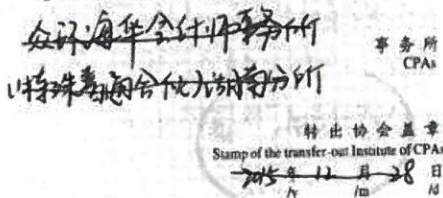 众环海华会计师事务所
(特殊普通合伙)湖南分所
事务所
CPAs
转出协会盖章
Stamp of the transfer-out Institute of CPAs
2015年12月28日
/y /m /d